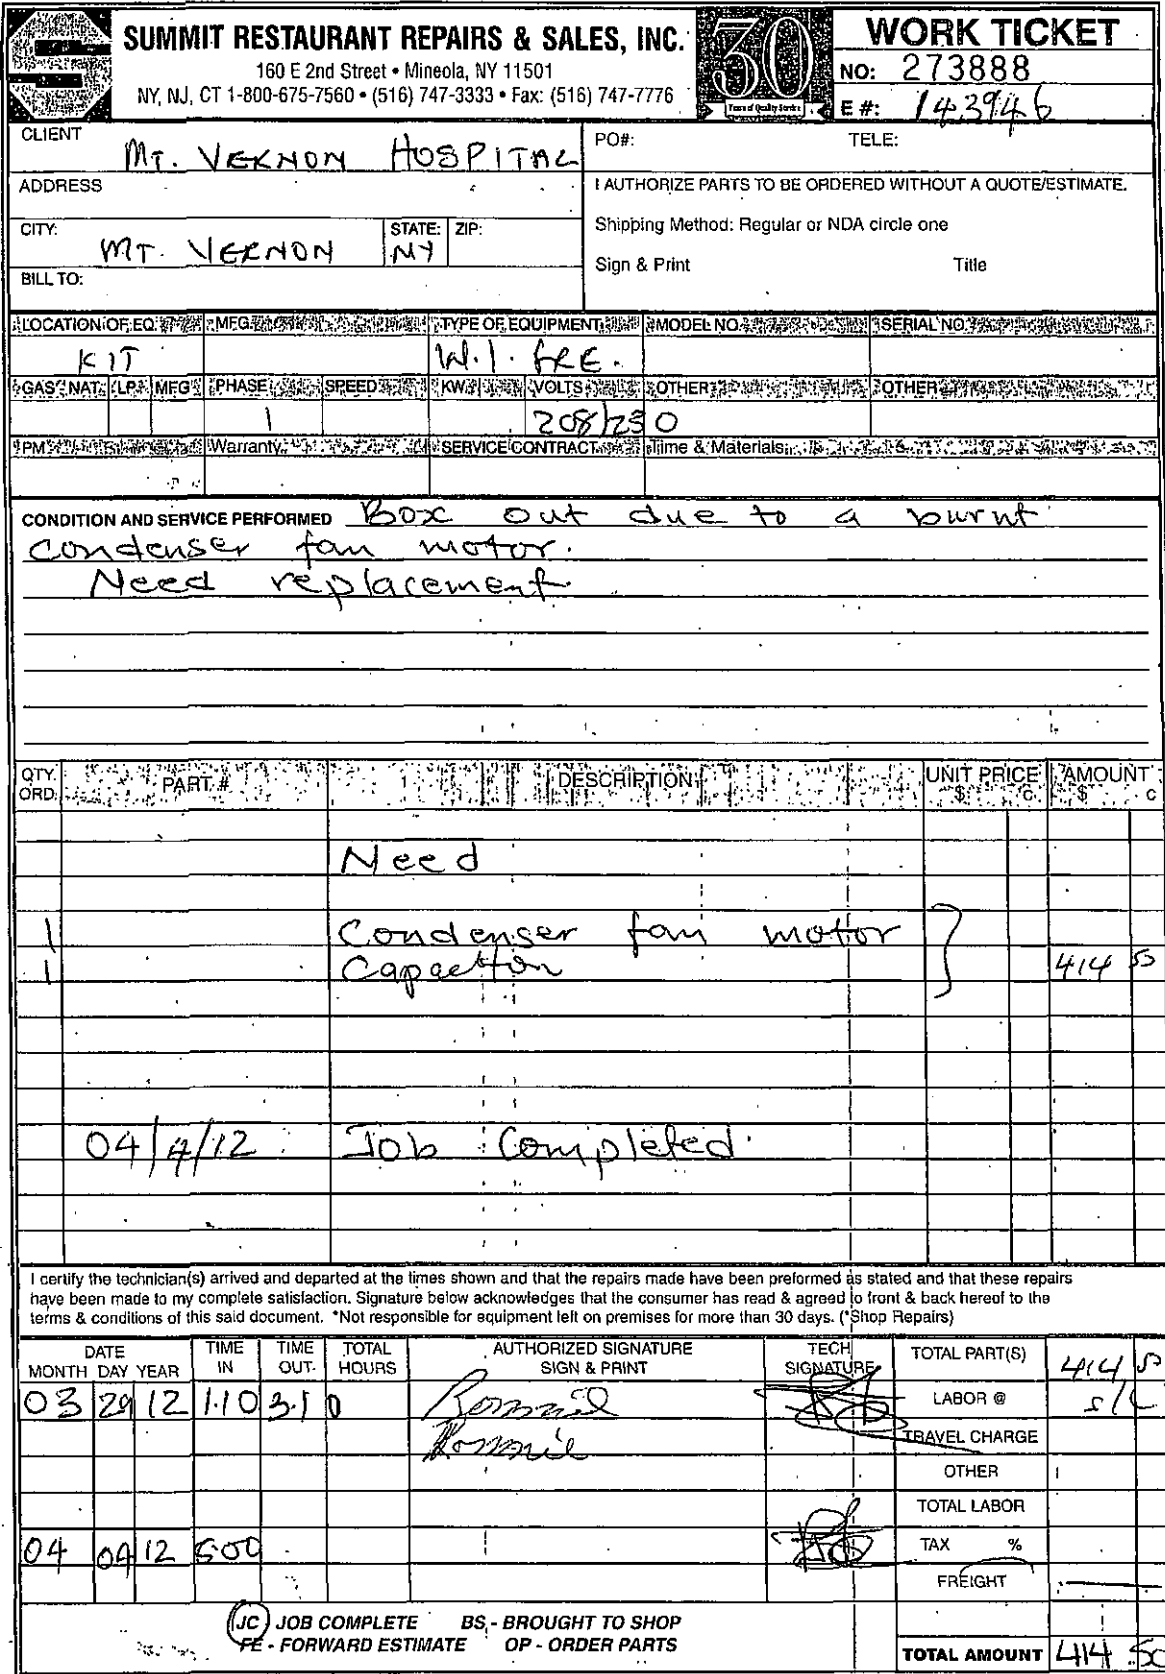 SUMMIT RESTAURANT REPAIRS & SALES, INC.
160 E 2nd Street • Mineola, NY 11501
NY, NJ, CT 1-800-675-7560 • (516) 747-3333 • Fax: (516) 747-7776
30
Years of Quality Service
WORK TICKET
NO: 273888
E #: 143946
CLIENT MT. VERNON HOSPITAL
PO#: TELE:
ADDRESS
I AUTHORIZE PARTS TO BE ORDERED WITHOUT A QUOTE/ESTIMATE.
CITY: MT. VERNON STATE: NY ZIP:
Shipping Method: Regular or NDA circle one
Sign & Print Title
BILL TO:
LOCATION OF EQ. MFG. TYPE OF EQUIPMENT MODEL NO. SERIAL NO.
KIT W.I. FRE.
GAS: NAT. LP. MFG PHASE SPEED KW VOLTS OTHER OTHER
1 208/230
PM Warranty SERVICE CONTRACT Time & Materials
CONDITION AND SERVICE PERFORMED Box out due to a burnt
condenser fan motor.
Need replacement
QTY. ORD. PART # DESCRIPTION UNIT PRICE $ c AMOUNT $ c
Need
1 Condenser fan motor
1 414 50
04/4/12 Job Completed.
I certify the technician(s) arrived and departed at the times shown and that the repairs made have been preformed as stated and that these repairs
have been made to my complete satisfaction. Signature below acknowledges that the consumer has read & agreed to front & back hereof to the
terms & conditions of this said document. *Not responsible for equipment left on premises for more than 30 days. (*Shop Repairs)
DATE MONTH DAY YEAR TIME IN TIME OUT TOTAL HOURS AUTHORIZED SIGNATURE SIGN & PRINT TECH SIGNATURE TOTAL PART(S) 414 50
03 29 12 1.10 3.10 LABOR @ s/c
Ronnie TRAVEL CHARGE
OTHER
TOTAL LABOR
04 04 12 5:00 TAX %
FREIGHT
JC JOB COMPLETE BS - BROUGHT TO SHOP
FE - FORWARD ESTIMATE OP - ORDER PARTS
TOTAL AMOUNT 414 50